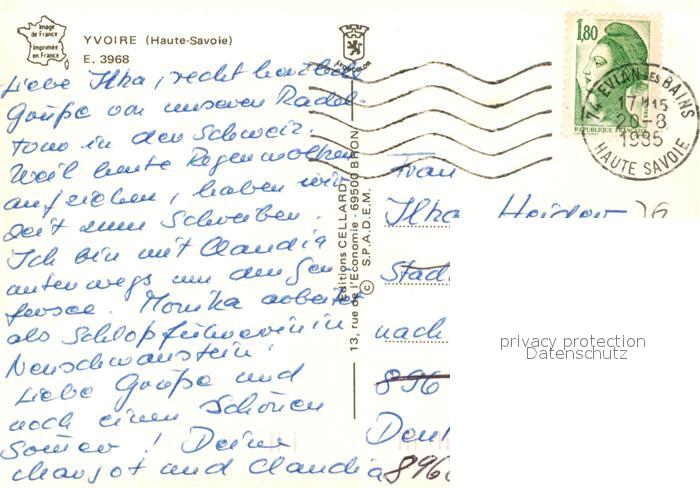 Image
de France
Imprimée
en France
YVOIRE (Haute-Savoie)
E. 3968
LYONCOLOR
1,80
REPUBLIQUE FRANÇAISE
74 EVIAN LES BAINS
17 H 15
20-8
1985
HAUTE SAVOIE
Liebe Ilka, recht herzliche
Grüße von unserer Radel-
tour in der Schweiz.
Weil heute Regenwolken
aufziehen, haben wir
Zeit zum Schreiben.
Ich bin mit Claudia
unterwegs um den Gen
fersee. Monika arbeitet
als Schloßführerin in
Neuschwanstein!
Liebe Grüße und
noch einen schönen
Sommer! Deine
Margot und Claudia
Editions CELLARD
13, rue de l'Economie - 69500 BRON
© S.P.A.D.E.M.
Frau
Ilka
Stadt
nach
896
896
privacy protection
Datenschutz